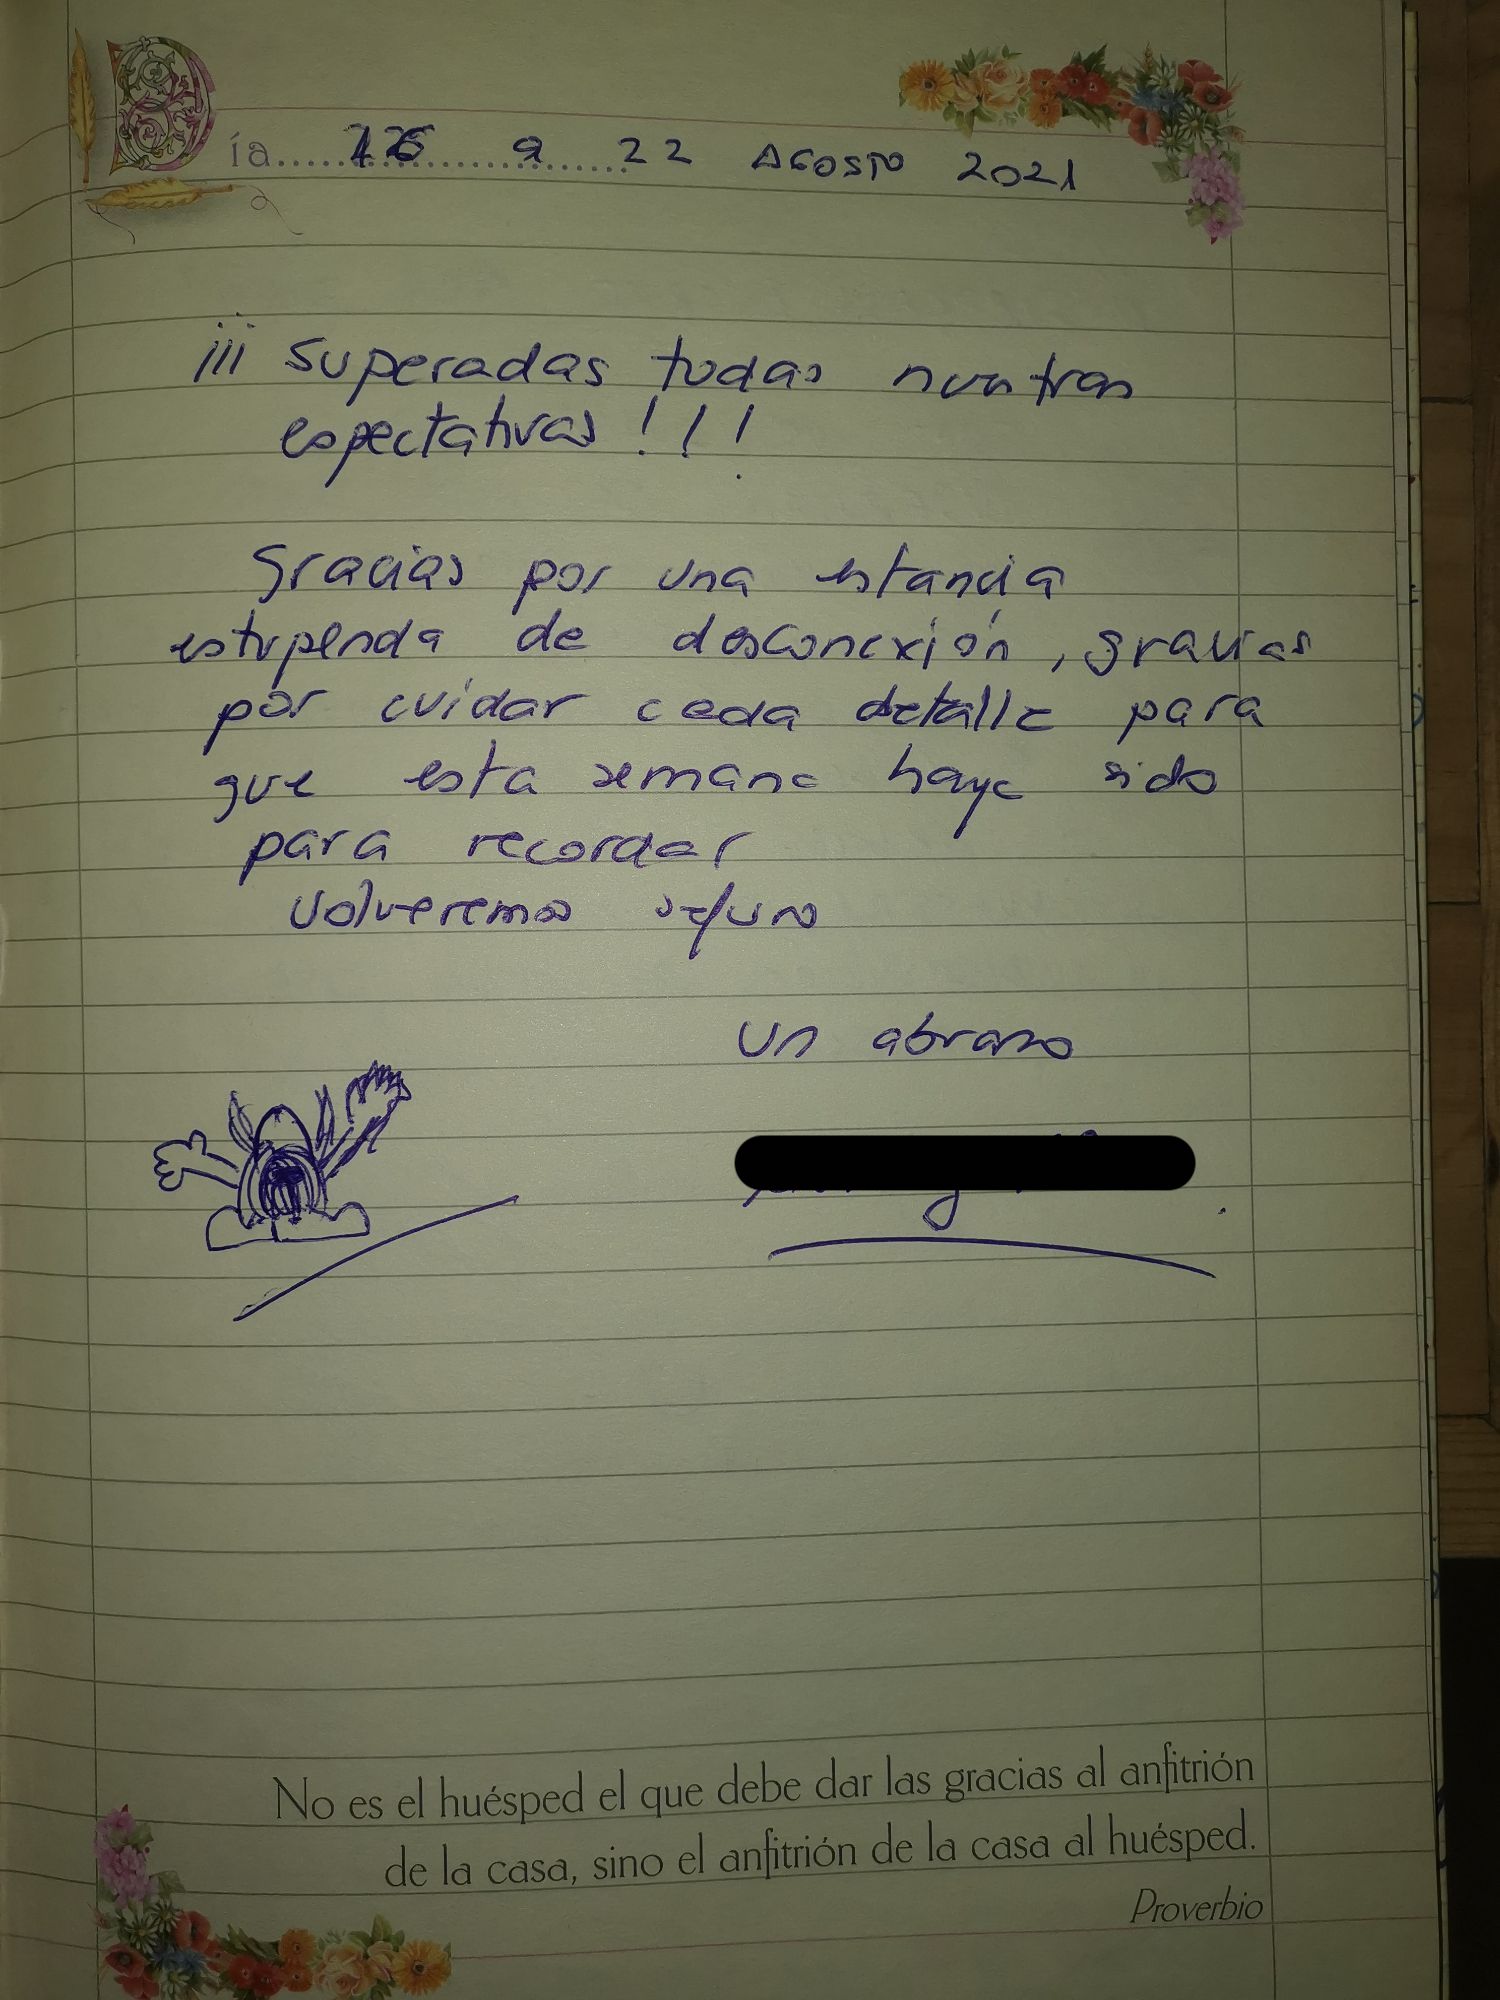 Día 16 a 22 AGOSTO 2021
¡¡¡ Superadas todas nuestras
espectativas!!!
Gracias por una estancia
estupenda de desconexión, gracias
por cuidar cada detalle para
que esta semana haya sido
para recordar
Volveremos seguro
Un abrazo
No es el huésped el que debe dar las gracias al anfitrión
de la casa, sino el anfitrión de la casa al huésped.
Proverbio